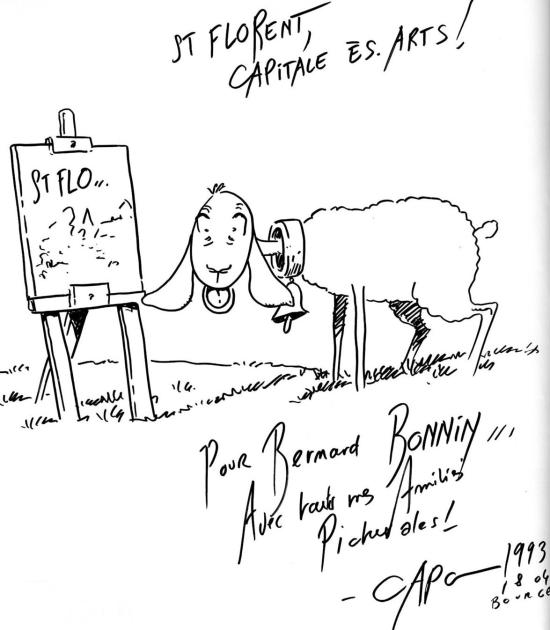 ST FLORENT,
CAPITALE ÈS. ARTS!
ST FLO...
Pour Bernard BONNIN ...
Avec toutes mes Amitiés
Picturales!
- CAPO
1993
18 04
BOURGES